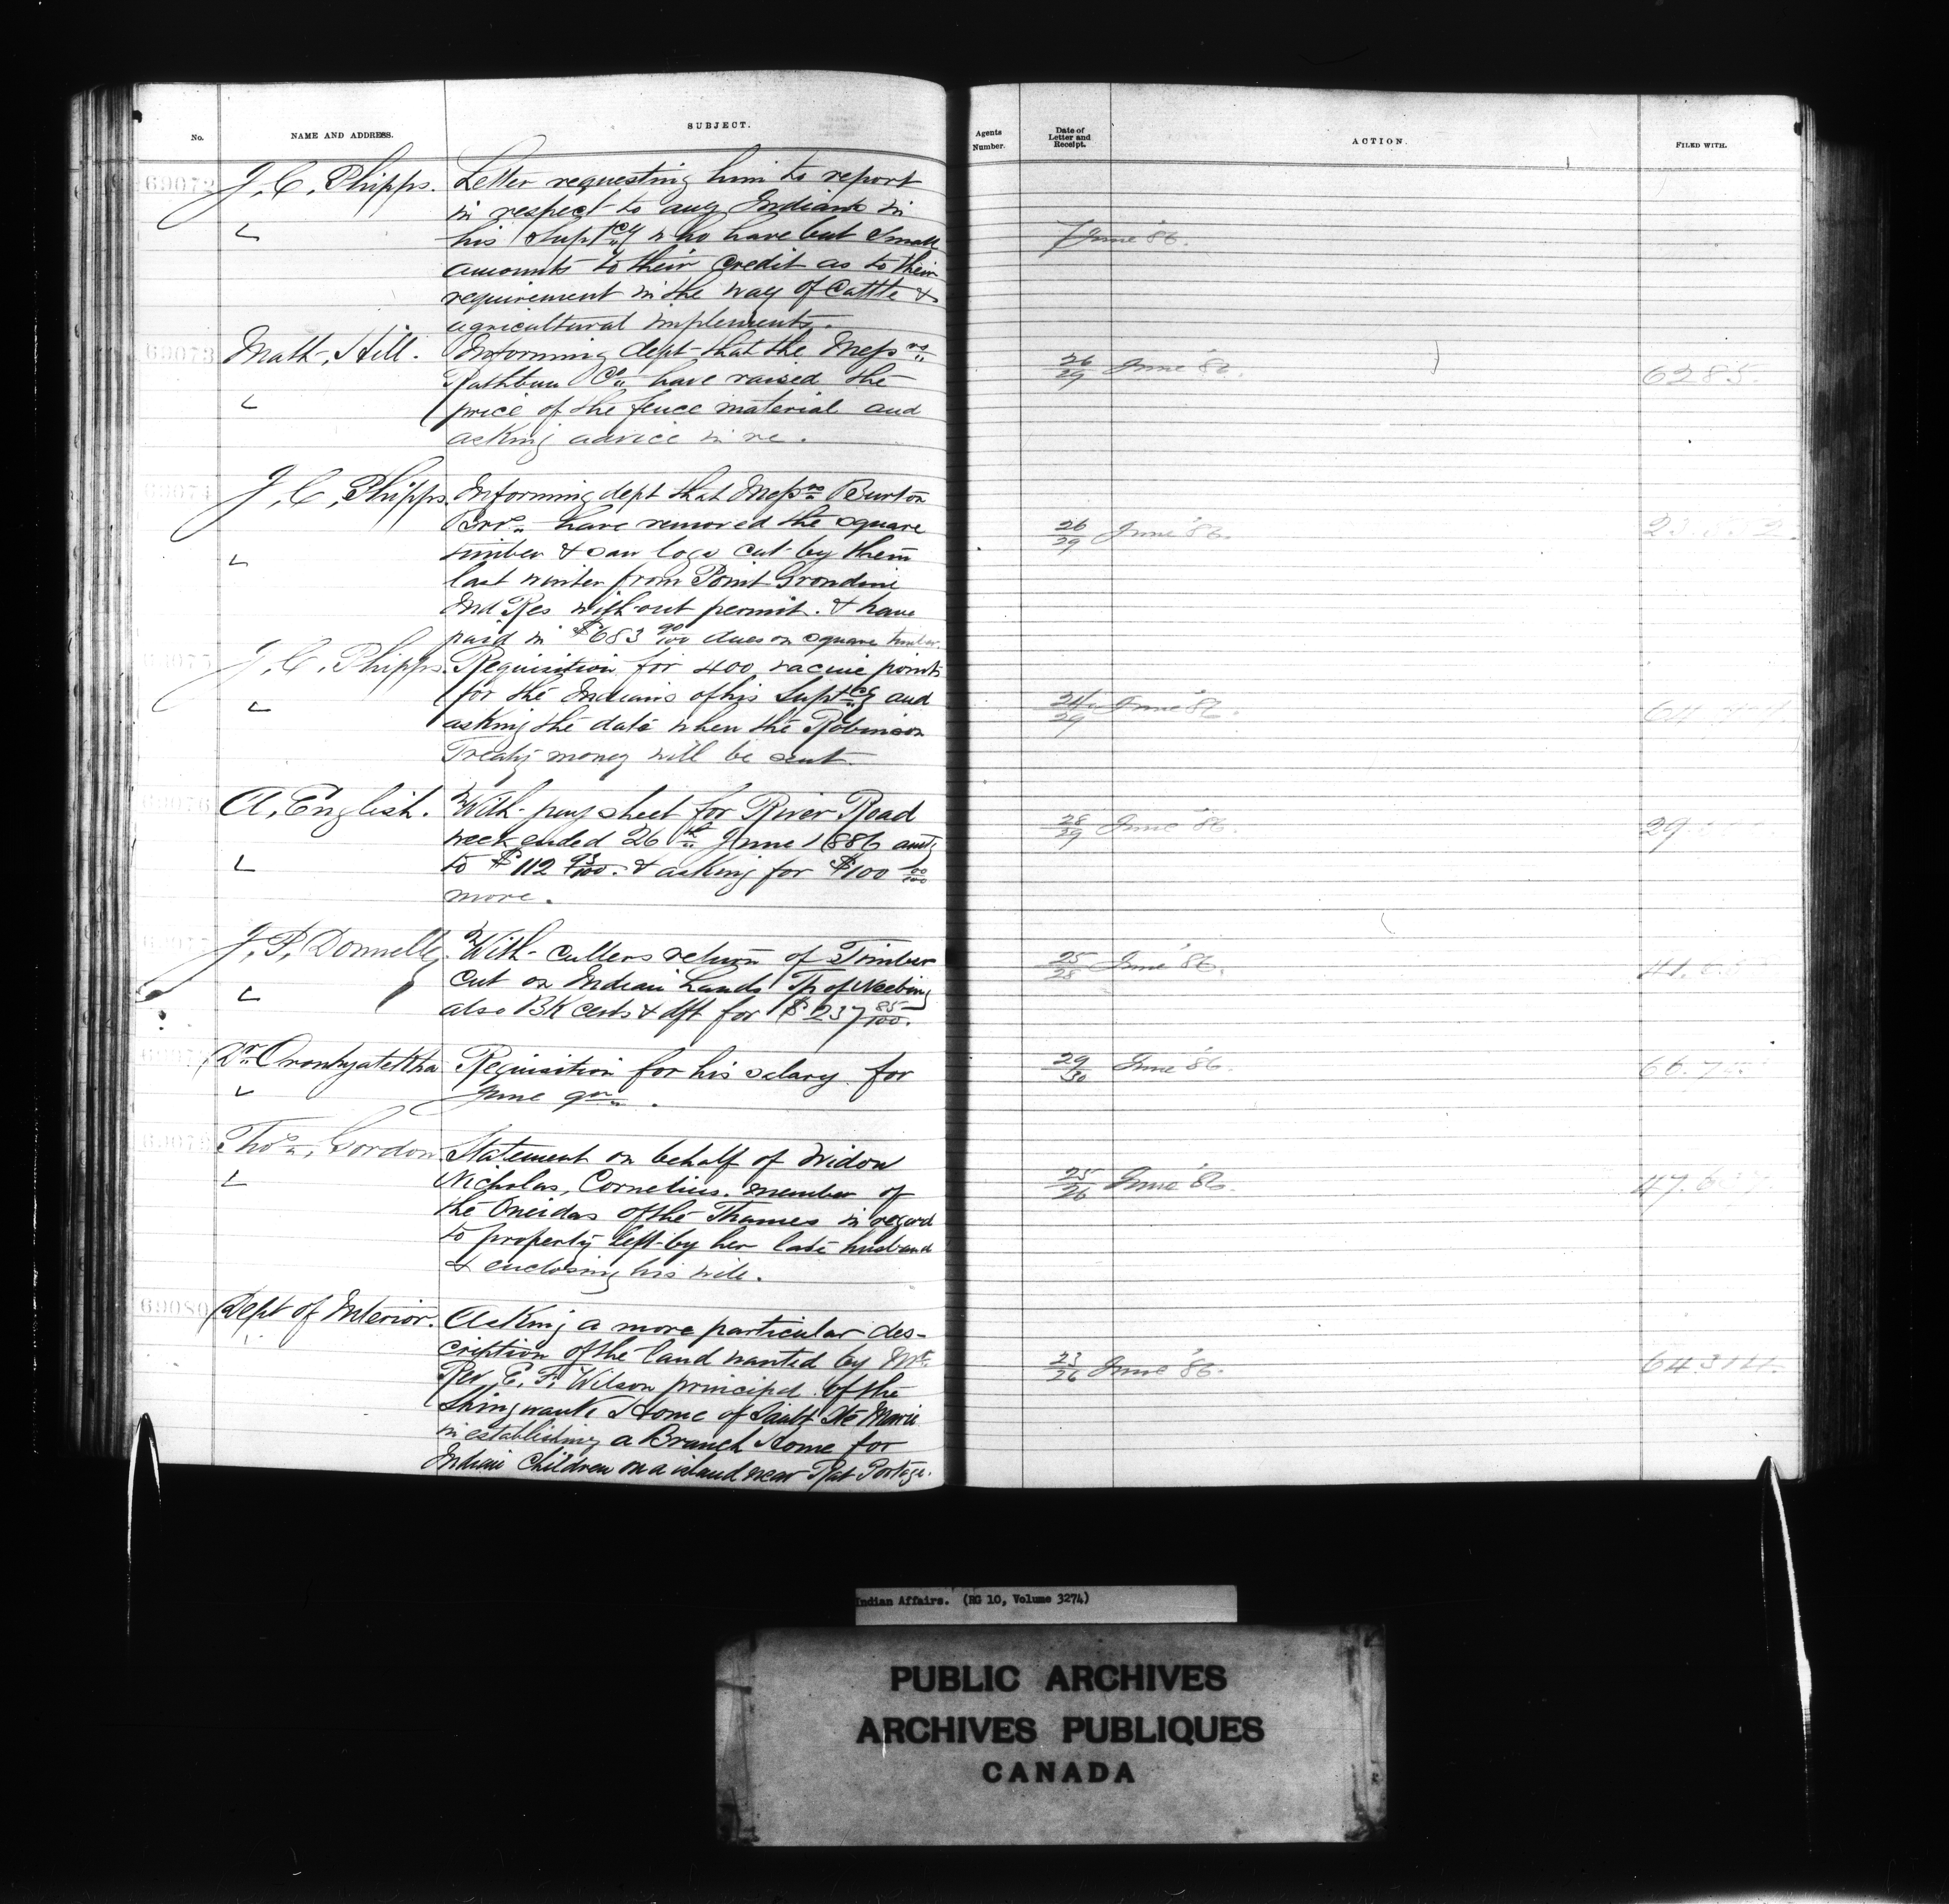 No.
NAME AND ADDRESS.
SUBJECT.
Agents Number.
Date of Letter and Receipt.
ACTION.
FILED WITH.
69072 J. C. Phipps. Letter requesting him to report
in respect to any Indians in
his Suptcy who have but small 7 June '86.
amounts to their credit as to their
requirement in the way of Cattle &
agricultural implements.
69073 Math. Hill. Informing dept that the Messrs 26/29 June '86. 6285.
Rathbun Co. have raised the
price of the fence material and
asking advice in re.
69074 J. C. Phipps. Informing dept that Messrs Burton
Bros. have removed the square 26/29 June '86.
timber & saw logs cut by them
last winter from Point Grondine
Ind Res without permit. & have
paid in $683 90/100 dues on square timber.
J. C. Phipps. Requisition for 400 vacine points
for the Indians of his Suptcy and 24/29 June '86.
asking the date when the Robinson
Treaty money will be sent.
69076 A. English. With pay sheet for River Road 28/29 June '86.
week ended 26th June 1886 amtg
to $112 93/100. & asking for $100 00/100
more.
J. P. Donnelly. With cullers return of Timber 25/28 June '86.
cut on Indian Lands Tp of Neebing
also BK certs & dft for $237 85/100.
Dr. Oronhyatekha Requisition for his salary for 29/30 June '86.
June qr.
69079 Thos. Gordon Statement on behalf of Widow
Nicholas, Cornelius. member of 25/26 June '86.
the Oneidas of the Thames in regard
to property left by her late husband
& enclosing his will.
69080 Dept of Interior. Asking a more particular des-
cription of the land wanted by Mr. 23/26 June '86. 64314.
Rev. E. F. Wilson principal of the
Shingwauk Home of Sault Ste Marie
in establishing a Branch Home for
Indian Children on a island near Rat Portage.
Indian Affairs. (RG 10, Volume 3274)
PUBLIC ARCHIVES
ARCHIVES PUBLIQUES
CANADA